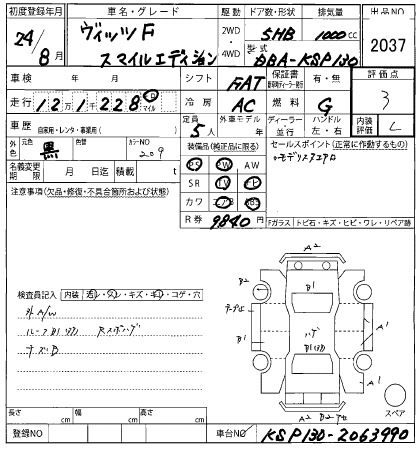 初度登録年月 車名・グレード 駆動 ドア数・形状 排気量 出品NO
24/8月 ヴィッツ F スマイルエディション 2WD ・ 4WD 5HB 1000cc 2037
型式 DBA-KSP130
車検 年 月 シフト FAT 保証書 有・無 評価点
走行 121228 km マイル 冷房 AC 燃料 G 3
車歴 自家用・レンタ・事業用( ) 定員 5人 外車車歴 ディーラー 並行 ハンドル 左・右 内装評価 C
外色 元色 黒 色替 カラーNO 209
装備品(純正品に限る) セールスポイント(正常に作動するもの)
PS PW AW
名義変更期限 月 日迄 積載 t
SR TV ナビ
注意事項(欠品・修復・不具合箇所および状態)
カワ エアB ABS
R券 9840円
Fガラス トビ石・キズ・ヒビ・ワレ・リペア跡
検査員記入 内装 汚・スレ・キズ・キレ・コゲ・穴
外A/W
ルーフB1
キズB
A2
B2
B1
B1
A1
A1
A2 B2
スペア
長さ cm 幅 cm 高さ cm
登録NO 車台NO KSP130-2063990